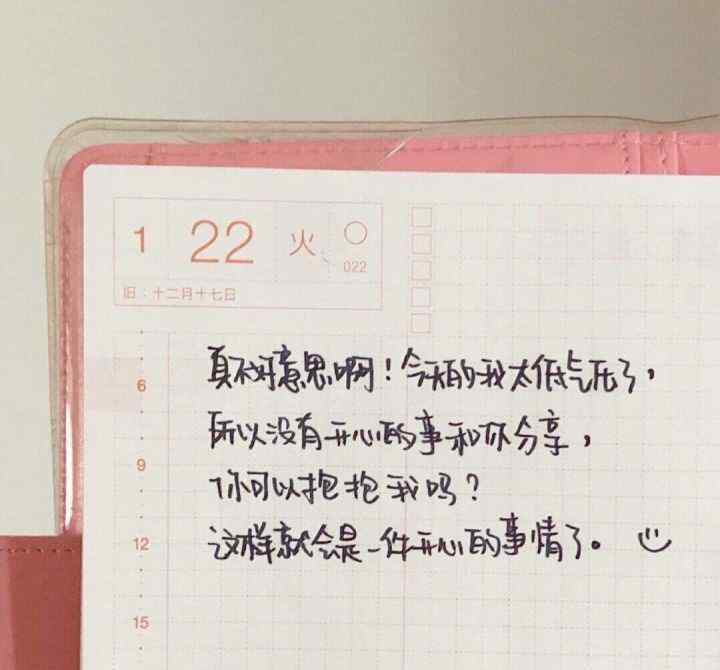 1 22 火 022
旧:十二月十七日
真不好意思啊!今天的我太低气压了,
6
所以没有开心的事和你分享,
9
你可以抱抱我吗?
12
这样就会是一件开心的事情了。
15